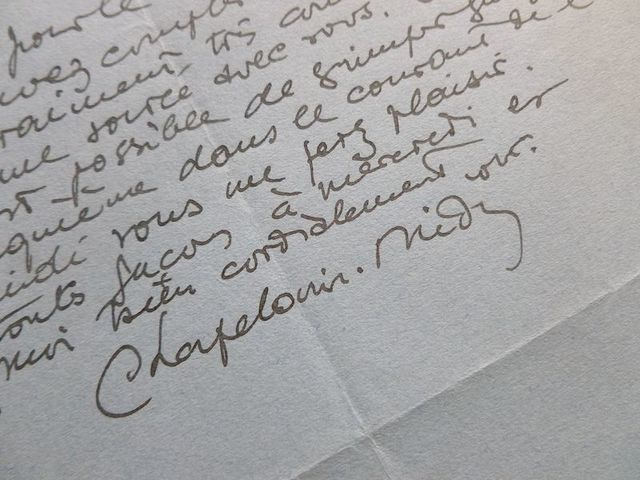 pour le
avez compter
vraiment très
une soirée avec vous.
est possible de grimper
cinquième dans le courant de l'
midi vous me ferez plaisir.
toute façon à mercredi et
suis bien cordialement vôtre.
Chapelain-Midy